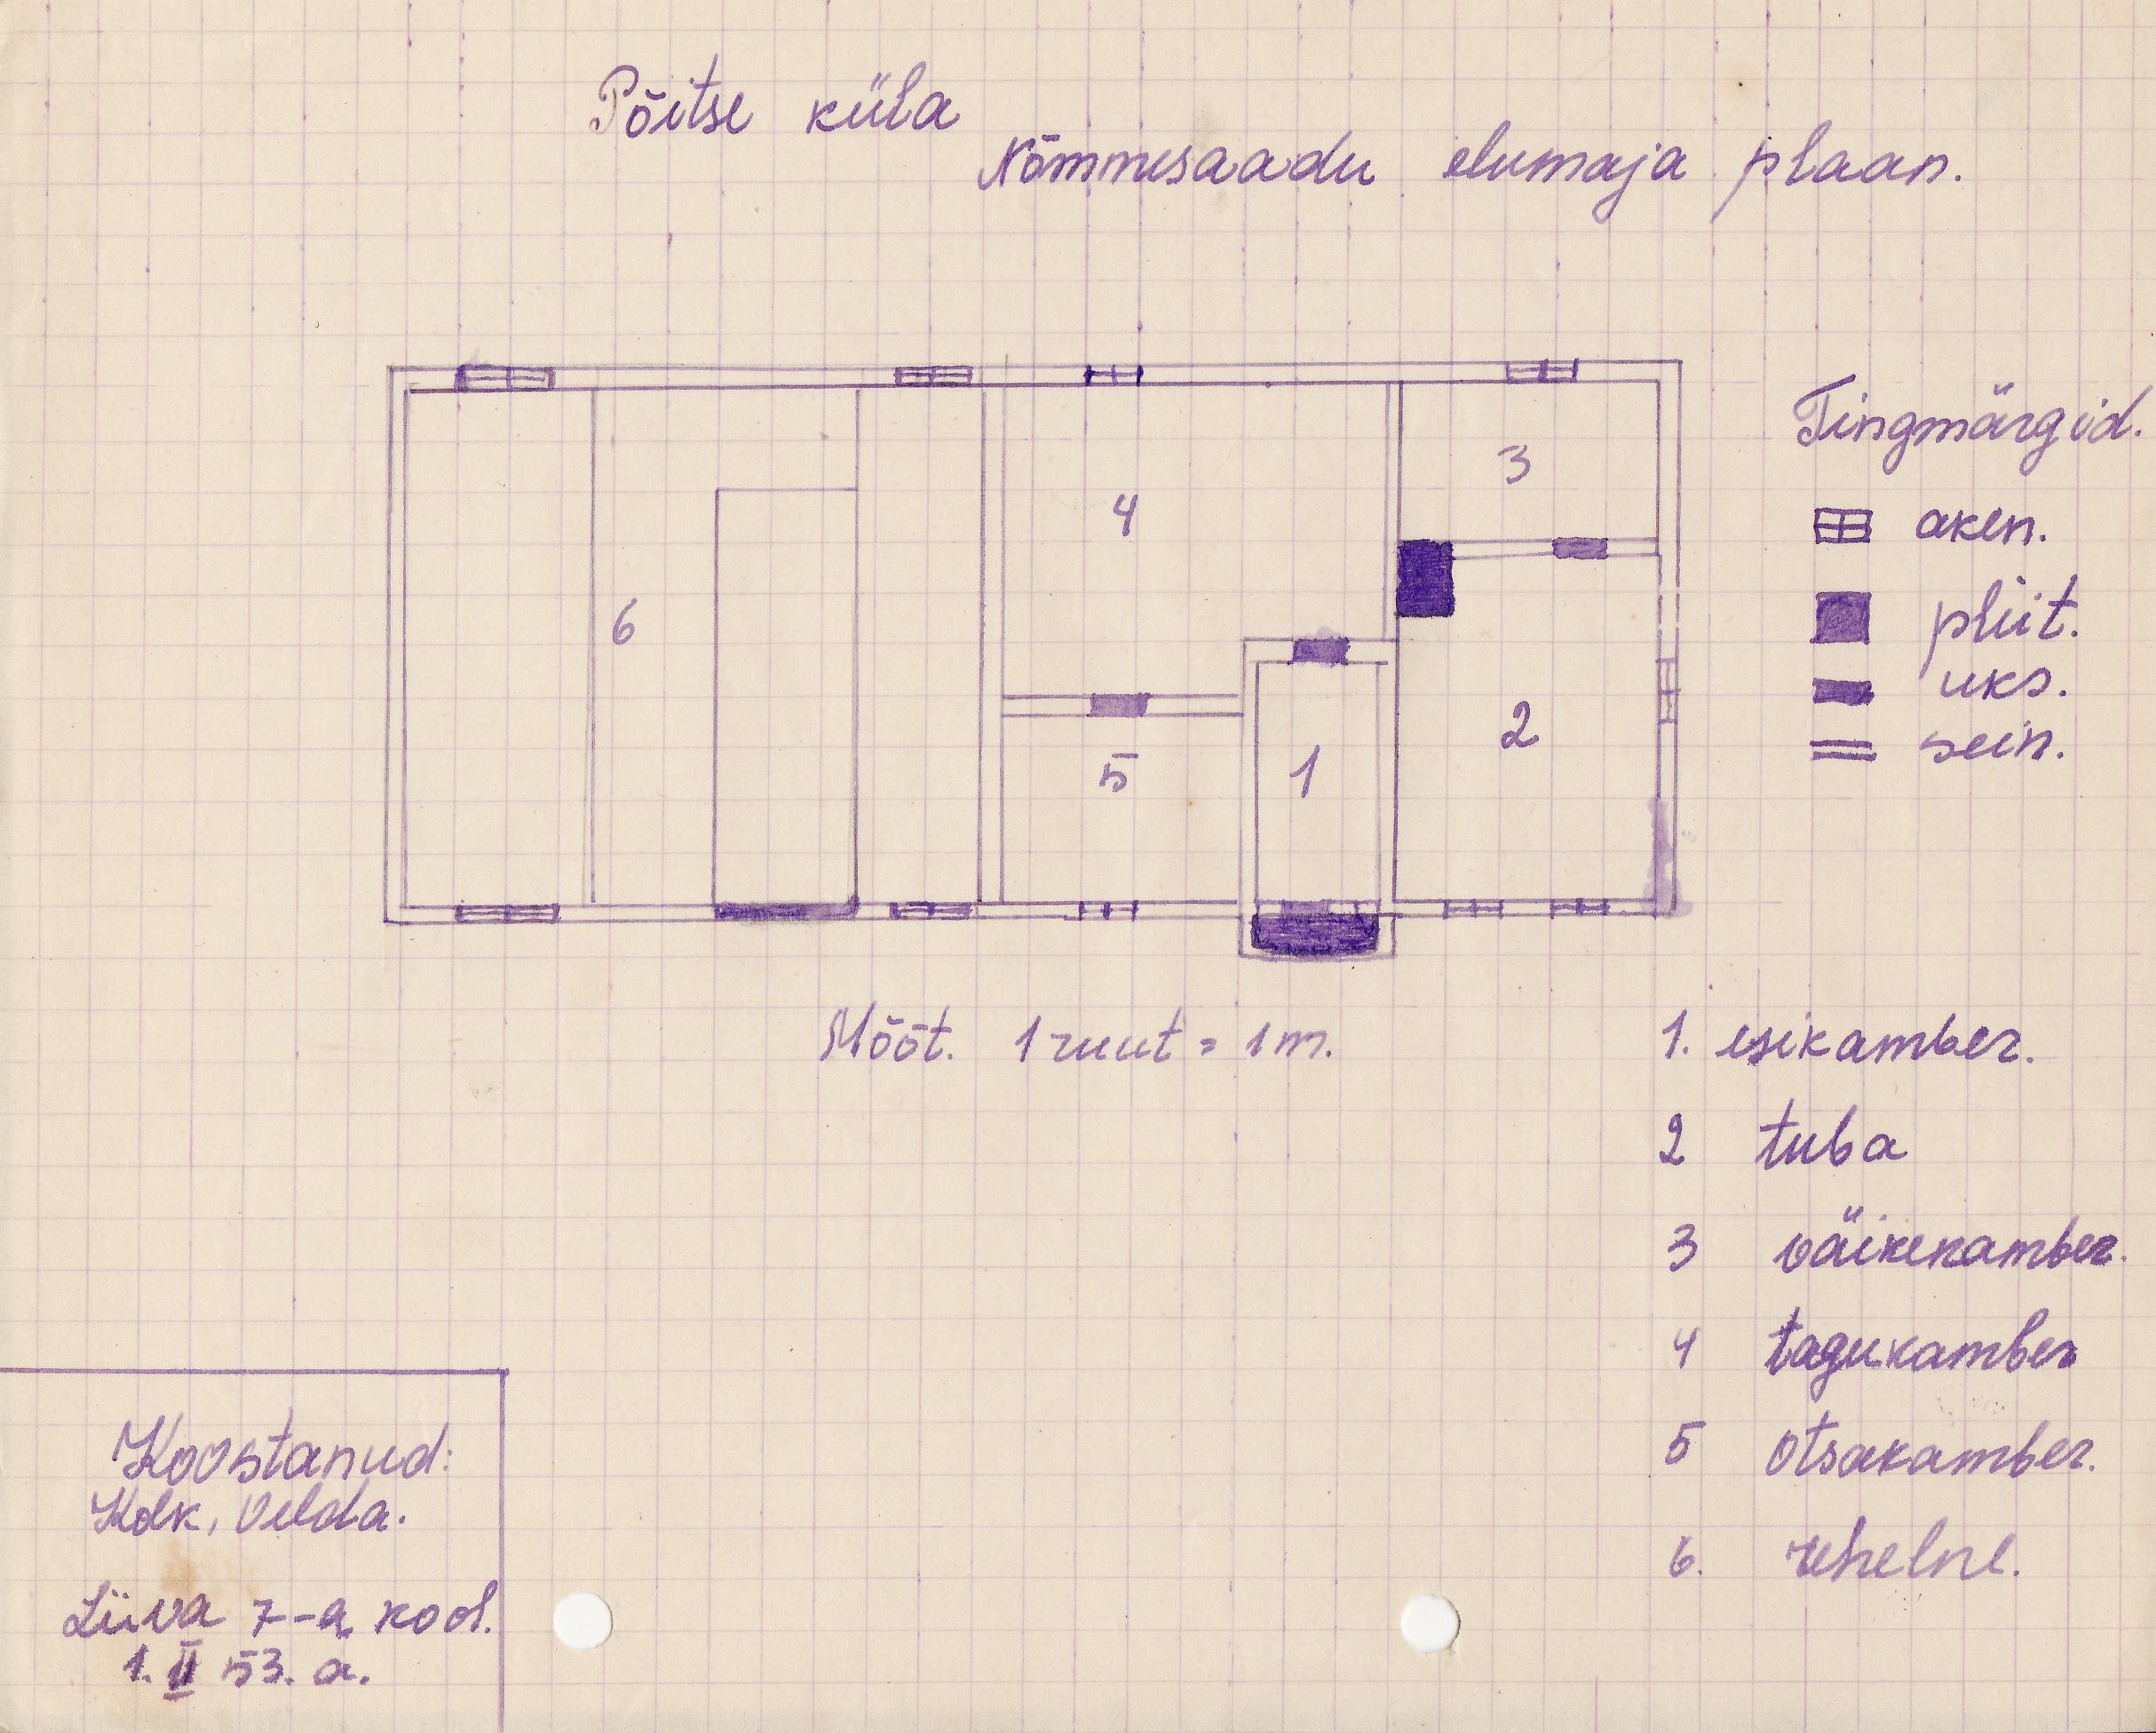 Põitse küla
Nõmmesaadu elumaja plaan.
Tingmärgid.
aken.
pliit.
uks.
sein.
3
4
6
2
5
1
Mõõt. 1 ruut = 1 m.
1. esikamber.
2 tuba
3 väikekamber.
4 tagukamber
5 otsakamber.
6. rehelne.
Koostanud:
Kolk, Velda.
Liiva 7-a kool.
1. II 53. a.